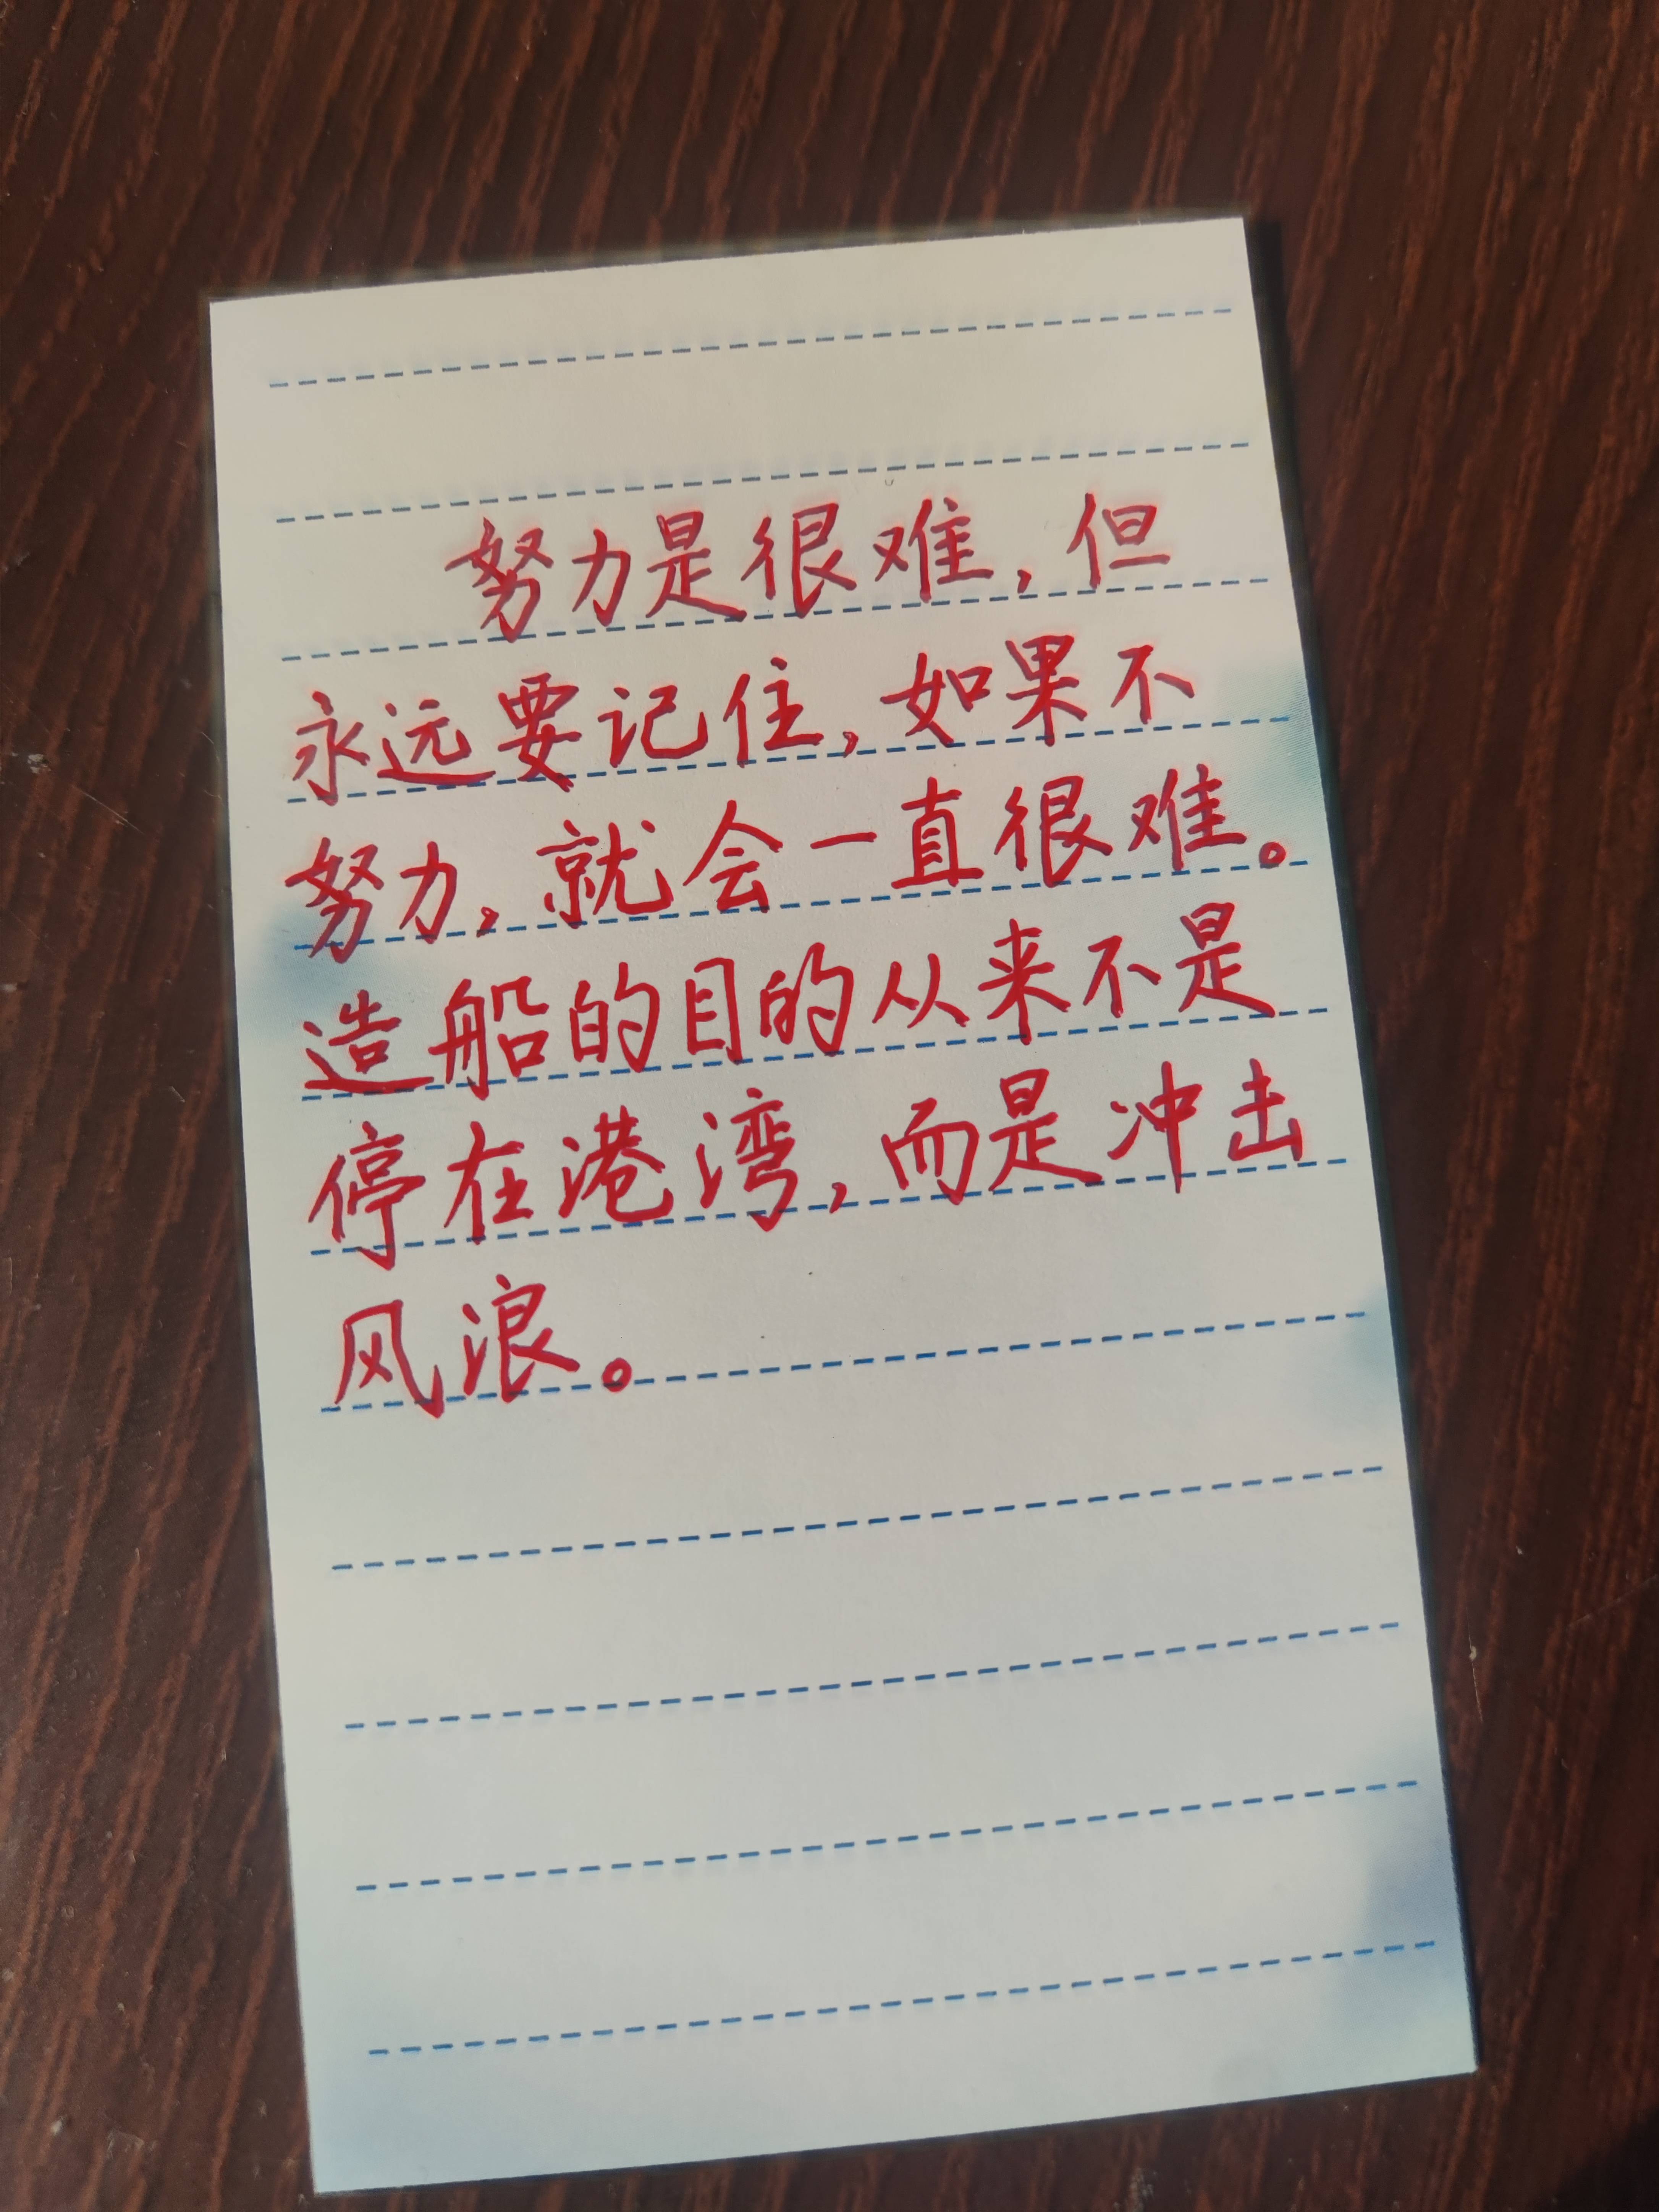 努力是很难，但
永远要记住，如果不
努力，就会一直很难。
造船的目的从来不是
停在港湾，而是冲击
风浪。